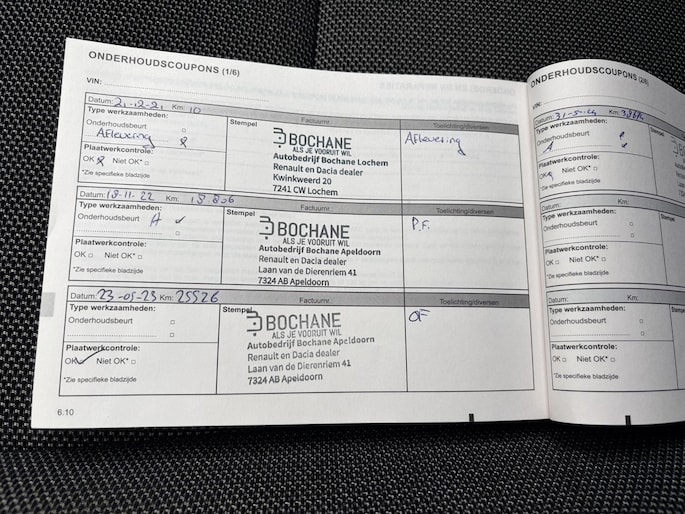 ONDERHOUDSCOUPONS (1/6)
VIN:
Datum: 21-12-21 Km: 10
Factuurnr.
Toelichting/diversen
Type werkzaamheden:
Stempel
Onderhoudsbeurt
Aflevering
BOCHANE
ALS JE VOORUIT WIL
Autobedrijf Bochane Lochem
Renault en Dacia dealer
Kwinkweerd 20
7241 CW Lochem
Aflevering
Plaatwerkcontrole:
OK Niet OK*
*Zie specifieke bladzijde
Datum: 18-11-22 Km: 18.806
Factuurnr.
Toelichting/diversen
Type werkzaamheden:
Stempel
Onderhoudsbeurt A
BOCHANE
ALS JE VOORUIT WIL
Autobedrijf Bochane Apeldoorn
Renault en Dacia dealer
Laan van de Dierenriem 41
7324 AB Apeldoorn
P.F.
Plaatwerkcontrole:
OK Niet OK*
*Zie specifieke bladzijde
Datum: 23-05-23 Km: 25526
Factuurnr.
Toelichting/diversen
Type werkzaamheden:
Stempel
Onderhoudsbeurt
BOCHANE
ALS JE VOORUIT WIL
Autobedrijf Bochane Apeldoorn
Renault en Dacia dealer
Laan van de Dierenriem 41
7324 AB Apeldoorn
OF
Plaatwerkcontrole:
OK Niet OK*
*Zie specifieke bladzijde
6.10
ONDERHOUDSCOUPONS (2/6)
VIN:
Datum: Km:
Type werkzaamheden:
Stempel
Onderhoudsbeurt
A
Plaatwerkcontrole:
OK Niet OK*
*Zie specifieke bladzijde
Datum: Km:
Type werkzaamheden:
Stempel
Onderhoudsbeurt
Plaatwerkcontrole:
OK Niet OK*
*Zie specifieke bladzijde
Datum: Km:
Type werkzaamheden:
Stempel
Onderhoudsbeurt
Plaatwerkcontrole:
OK Niet OK*
*Zie specifieke bladzijde